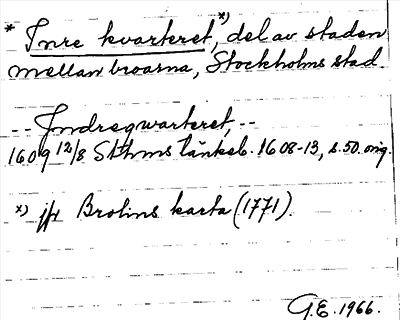 * Inre kvarteret, x) del av staden
mellan broarna, Stockholms stad.
-- Indreqwarteret, --
1609 12/8 Sthms tänkeb. 1608-13, s. 50. orig.
x) jfr Brolins karta (1771).
G.E. 1966.